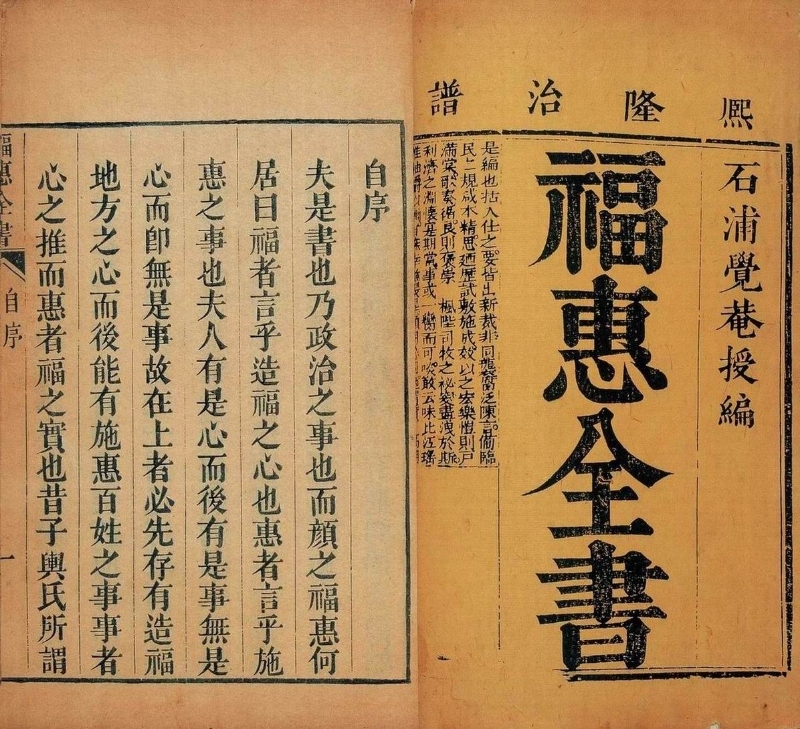 熙隆治譜
石浦覺菴授編
福惠全書
是編也括入仕之要皆出新裁非同泛陳言備臨
民之規咸本精思廼歷試敷施成效以之宏樂愷則戶
滿棠歌奏循良則褒 楓陛司牧之秘盡洩於斯
利濟之淵懷寔期當事或一臠而可云味比江瑤
自序
夫是書也乃政治之事也而顏之福惠何
居曰福者言乎造福之心也惠者言乎施
惠之事也夫人有是心而後有是事無是
心而卽無是事故在上者必先存有造福
地方之心而後能有施惠百姓之事事者
心之推而惠者福之實也昔子輿氏所謂
福惠全書 自序 一